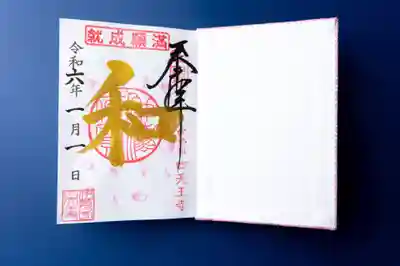 満願成就
奉拝
四天王寺
和
令和六年一月一日